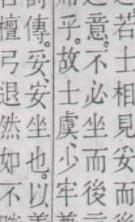 若士相見妥而
意。不必坐而後
乎。故士虞、少牢
傳。妥、安坐也。以
檀弓退然如不